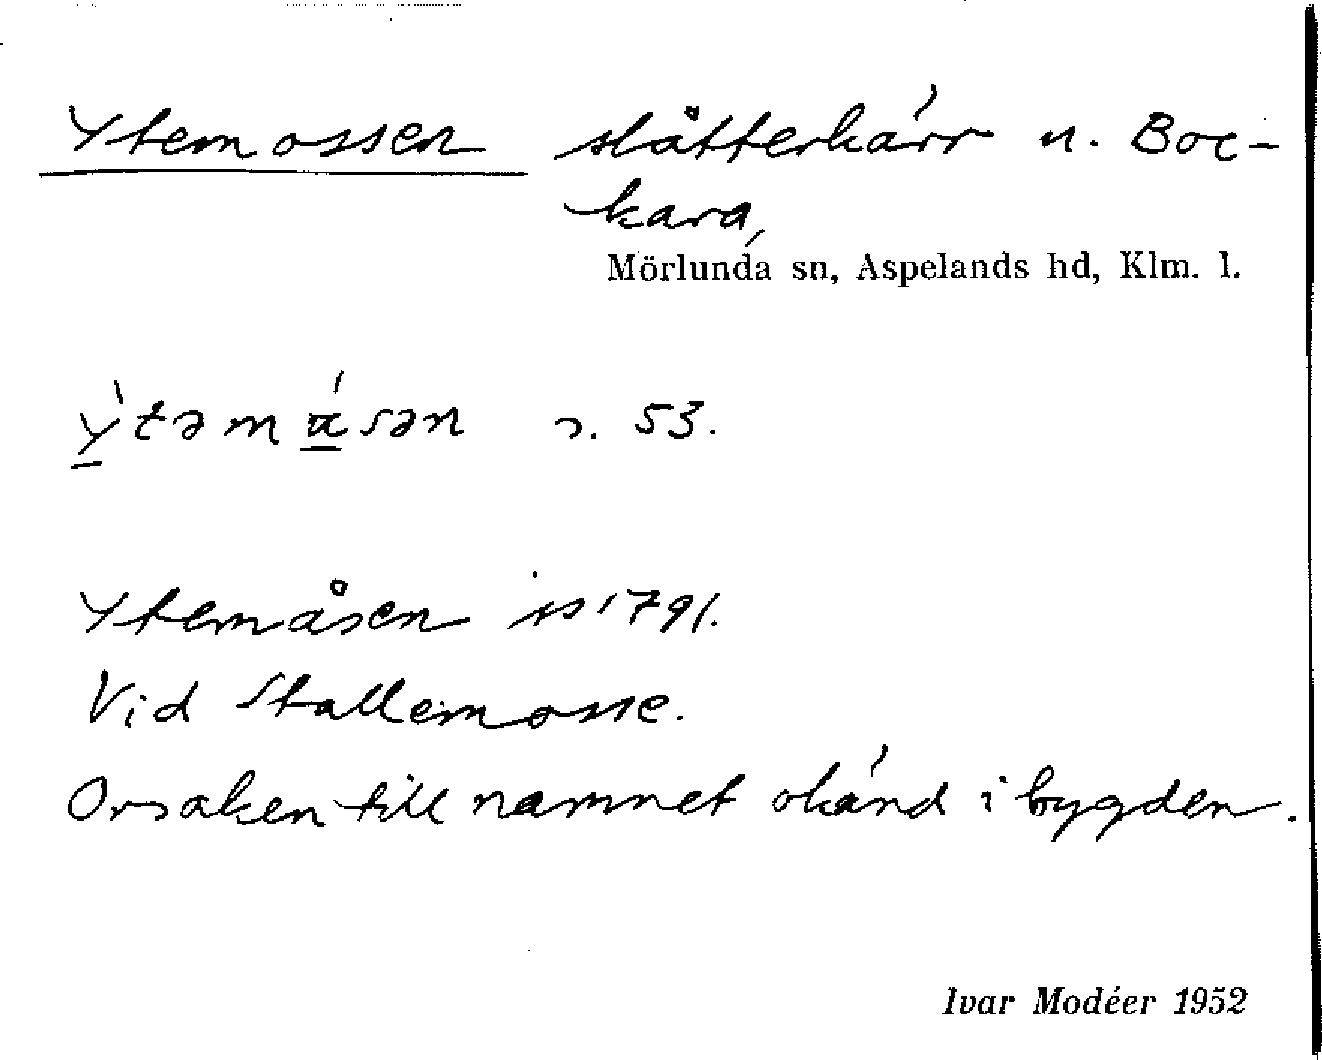 Ytemossen slåtterkärr n. Boc-
kara,
Mörlunda sn, Aspelands hd, Klm. l.
ỳtəmásən s. 53.
Ytemåsen is 1791.
Vid Stallemosse.
Orsaken till namnet okänd i bygden.
Ivar Modéer 1952